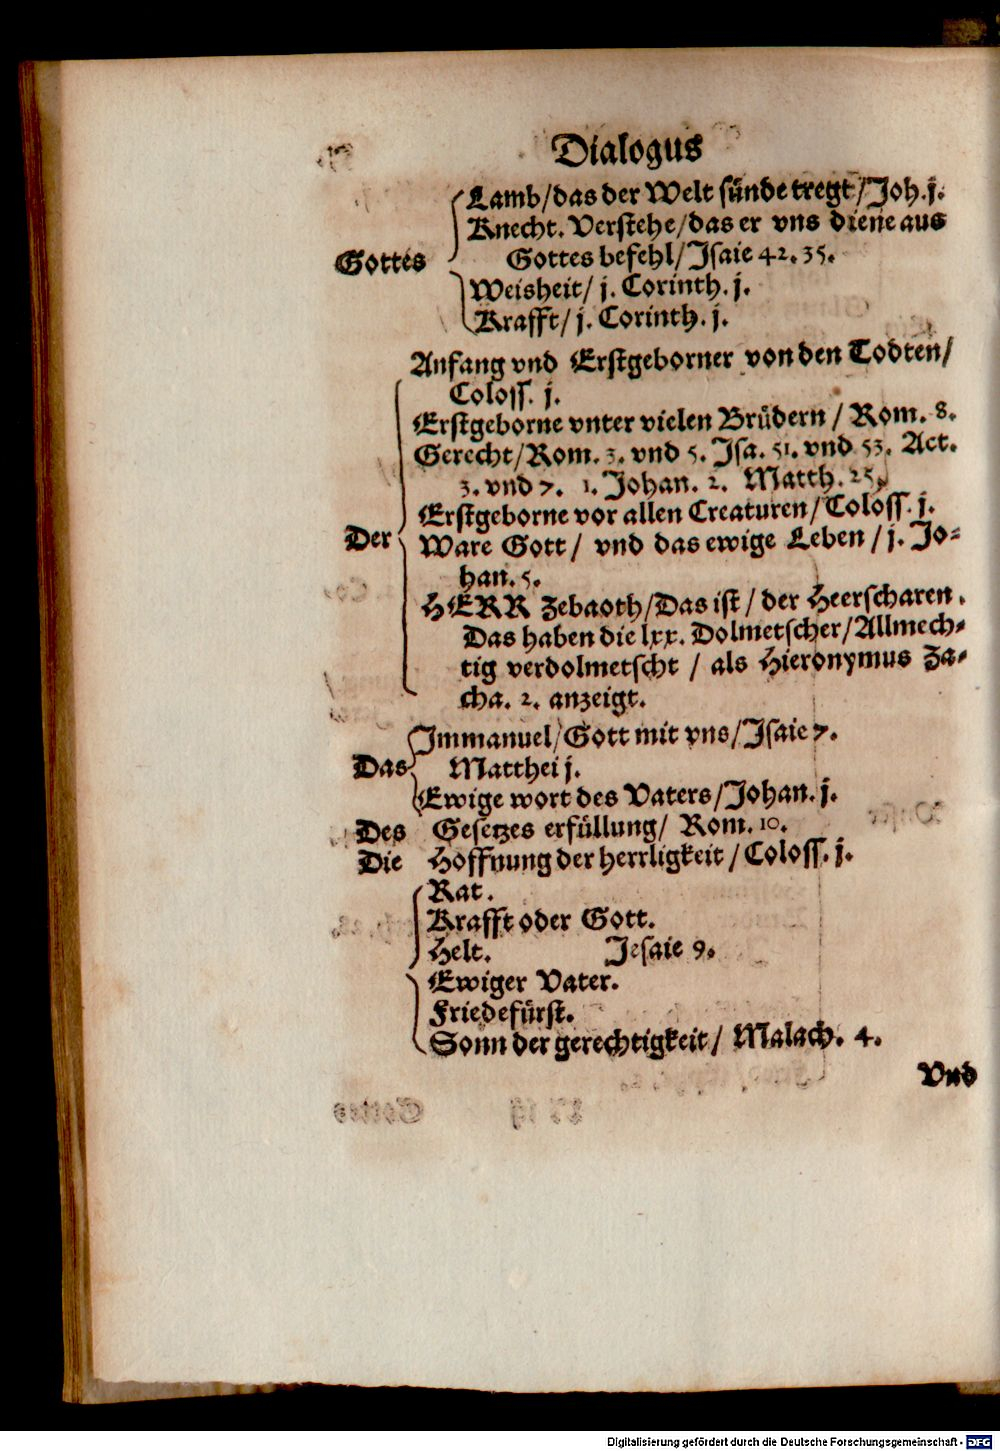 Dialogus
Lamb/das der Welt sünde tregt/Joh.j.
Knecht. Verstehe/das er vns diene aus
Gottes befehl/Jsaie 42. 35.
Gottes
Weisheit/ j. Corinth. j.
Krafft/ j. Corinth. j.
Anfang vnd Erstgeborner von den Todten/
Coloss. j.
Erstgeborne vnter vielen Brüdern / Rom. 8.
Gerecht/Rom. 3. vnd 5. Jsa. 51. vnd 53. Act.
3. vnd 7. 1. Johan. 2. Matth. 25.
Erstgeborne vor allen Creaturen/Coloss. j.
Der
Ware Gott/ vnd das ewige Leben / j. Jo-
han. 5.
HERR Zebaoth/Das ist / der Heerscharen.
Das haben die lxx. Dolmetscher/Allmech-
tig verdolmetscht / als Hieronymus Za-
cha. 2. anzeigt.
Jmmanuel/Gott mit vns/Jsaie 7.
Das Matthei j.
Ewige wort des Vaters/Johan. j.
Des Gesetzes erfüllung/ Rom. 10.
Die Hoffnung der herrligkeit / Coloss. j.
Rat.
Krafft oder Gott.
Helt. Jesaie 9.
Ewiger Vater.
Friedefürst.
Sonn der gerechtigkeit/ Malach. 4.
Vnd
Digitalisierung gefördert durch die Deutsche Forschungsgemeinschaft - DFG